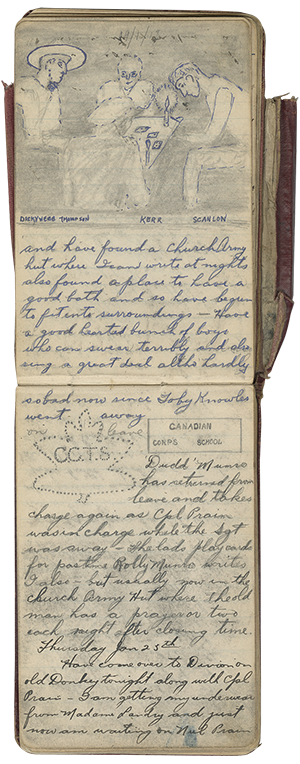 DICKY WEBB THOMPSON KERR SCANLON
and have found a Church Army
hut where I can write at nights
also found a place to have a
good bath and so have begun
to fit into surroundings – Have
a good hearted bunch of boys
who can swear terribly and also
sing a great deal altho hardly
so bad now since Toby Knowles
went away
on leave
C.C.T.S
25
CANADIAN
CORPS SCHOOL
"Dudd" Munro
has returned from
leave and takes
charge again as Cpl Prain
was in charge while the Sgt
was away – The lads play cards
for pastime Rolly Munro writes
I also – but usually now in the
Church Army Hut where the old
man has a prayer or two
each night after closing time.
Thursday Jan 25th
Have come over to Divion on
old Donkey tonight along with Cpl
Prain – I am getting my underwear
from Madame Landry and just
now am waiting on Neil Prain